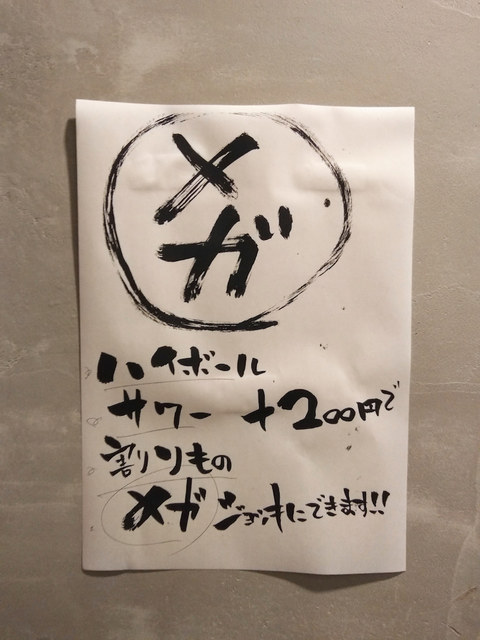 メ
ガ
ハイボール
サワー +200円で
割りもの
メガジョッキにできます!!